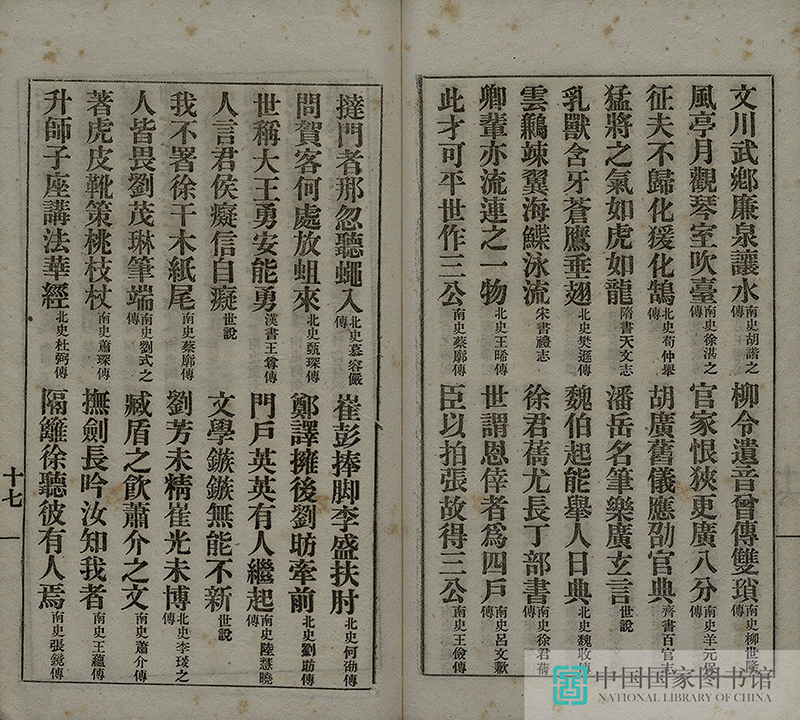 文川武鄉廉泉讓水南史胡諧之傳 柳令遺音曾傳雙瑣南史柳世隆傳
風亭月觀琴室吹臺南史徐湛之傳 官家恨狹更廣八分南史羊元保傳
征夫不歸化猨化鵠北史荀仲舉傳 胡廣舊儀應劭官典齊書百官志
猛將之氣如虎如龍隋書天文志 潘岳名筆樂廣玄言世說
乳獸含牙蒼鷹垂翅北史樊遜傳 魏伯起能舉人日典北史魏收傳
雲鵬竦翼海鰈泳流宋書禮志 徐君蒨尤長丁部書南史徐君蒨傳
卿輩亦流連之一物北史王晞傳 世謂恩倖者為四戶南史呂文歡傳
此才可平世作三公南史蔡廓傳 臣以拍張故得三公南史王儉傳
撻門者那忽聽蠅入北史慕容儼傳 崔彭捧脚李盛扶肘北史何劭傳
問賀客何處放蛆來北史甄琛傳 鄭譯擁後劉昉牽前北史劉昉傳
世稱大王勇安能勇漢書王尊傳 門戶英英有人繼起南史陸慧曉傳
人言君侯癡信自癡世說 文學鏃鏃無能不新世說
我不署徐干木紙尾南史蔡廓傳 劉芳未精崔光未博北史李琰之傳
人皆畏劉茂琳筆端南史劉式之傳 臧盾之飲蕭介之文南史蕭介傳
著虎皮靴策桃枝杖南史蕭琛傳 撫劍長吟汝知我者南史王蘊傳
升師子座講法華經北史杜弼傳 隔籬徐聽彼有人焉南史張鏡傳
十七
中国国家图书馆
NATIONAL LIBRARY OF CHINA